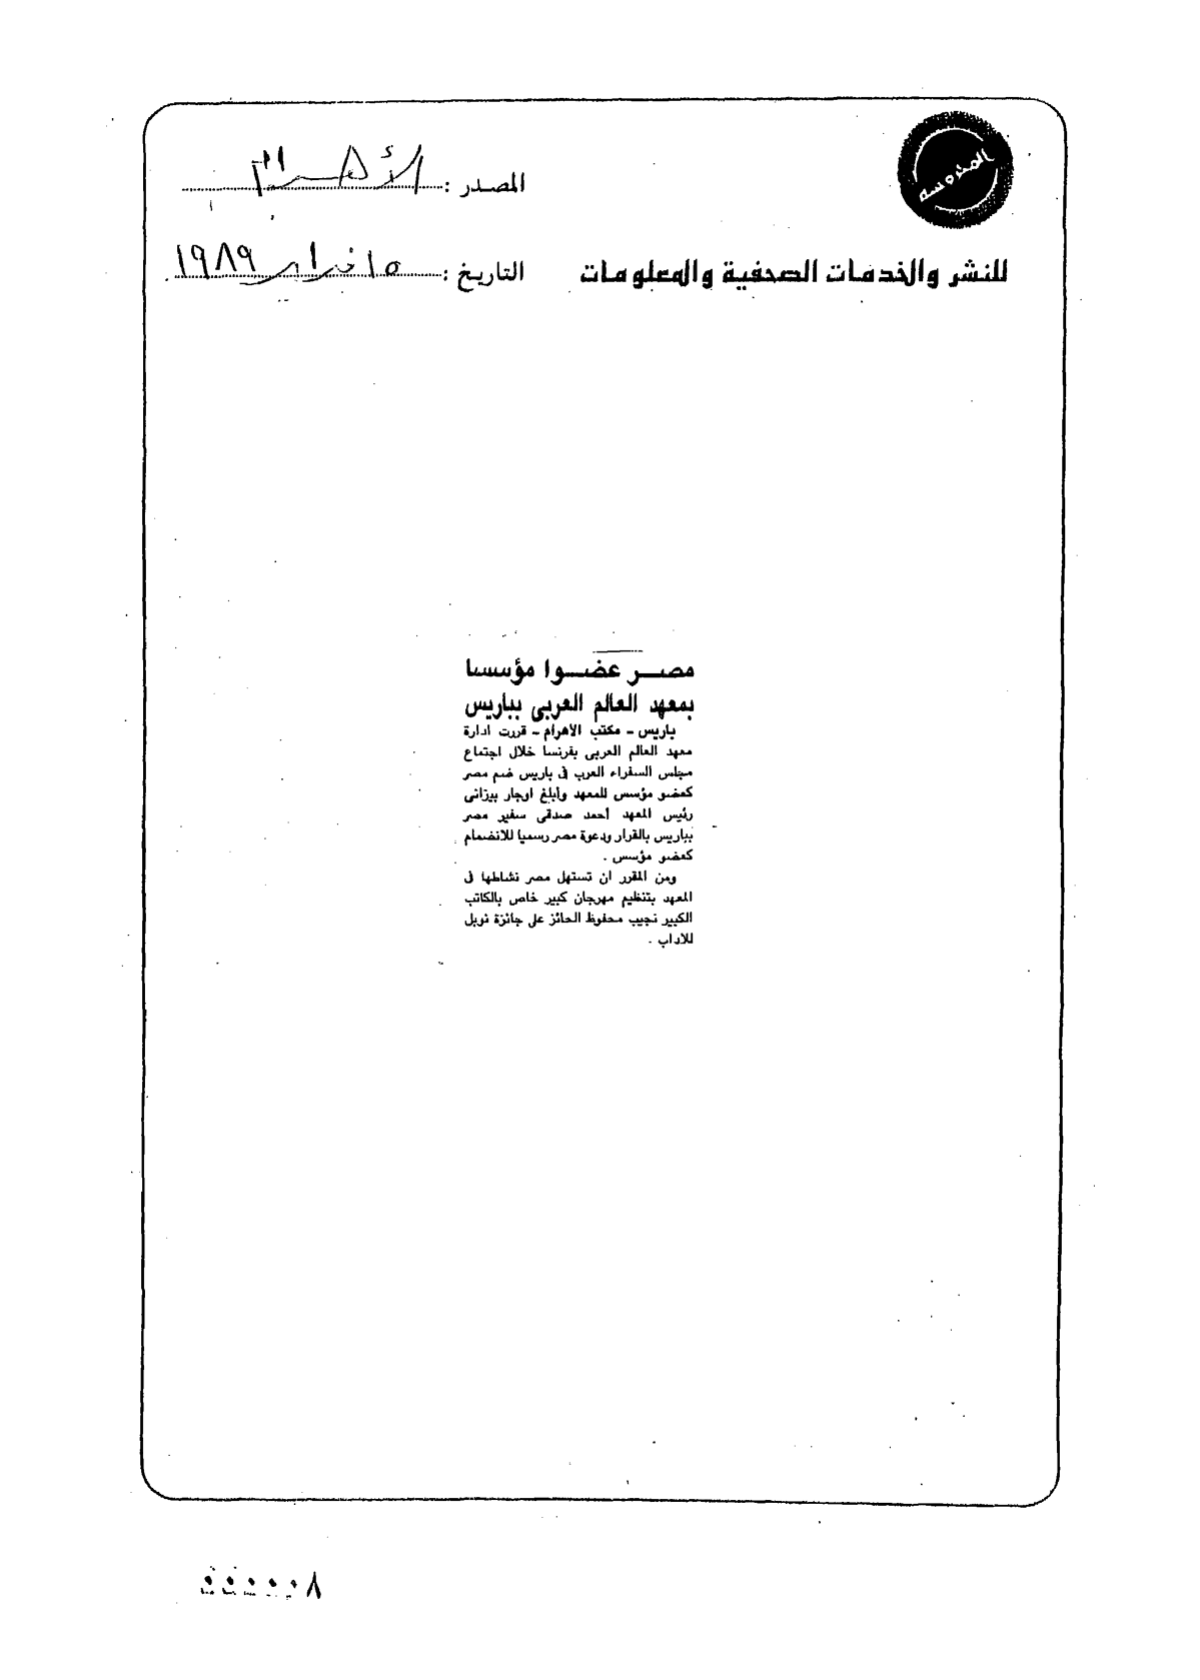 المحروسة
المصدر : الأهرام
للنشر والخدمات الصحفية والمعلومات
التاريخ : ١٥ فبراير ١٩٨٩
مصر عضوا مؤسسا
بمعهد العالم العربى بباريس
باريس - مكتب الأهرام - قررت ادارة
معهد العالم العربى بفرنسا خلال اجتماع
مجلس السفراء العرب فى باريس ضم مصر
كعضو مؤسس للمعهد وأبلغ اوجار بيزانى
رئيس المعهد أحمد صدقى سفير مصر
بباريس بالقرار ودعوة مصر رسميا للانضمام
كعضو مؤسس .
ومن المقرر ان تستهل مصر نشاطها فى
المعهد بتنظيم مهرجان كبير خاص بالكاتب
الكبير نجيب محفوظ الحائز على جائزة نوبل
للاداب .